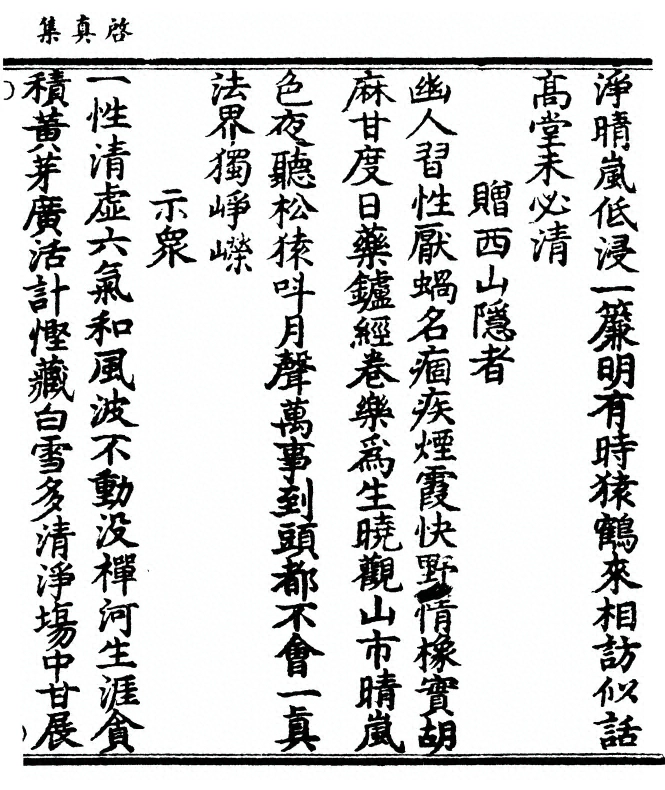 啓真集
淨晴嵐低浸一簾明有時猿鶴來相訪似話
髙堂未必清
贈西山隱者
幽人習性厭蝸名痼疾煙霞快野情橡實胡
麻甘度日藥鑪經卷樂爲生曉觀山市晴嵐
色夜聽松猿呌月聲萬事到頭都不會一眞
法界獨崢嶸
示衆
一性清虛六氣和風波不動没禪河生涯貪
積黃芽廣活計慳藏白雪多清淨塲中甘展